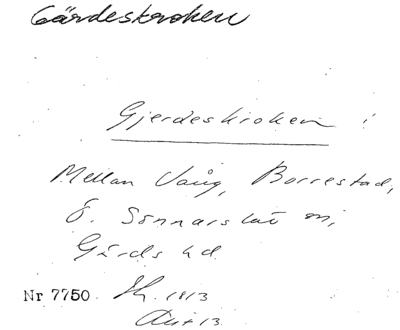 Gärdeskroken
Gjerdeskroken
Mellan Vång, Borrestad,
Ö. Sönnarslöv sn,
Gärds hd.
Nr 7750. Sk. 1813